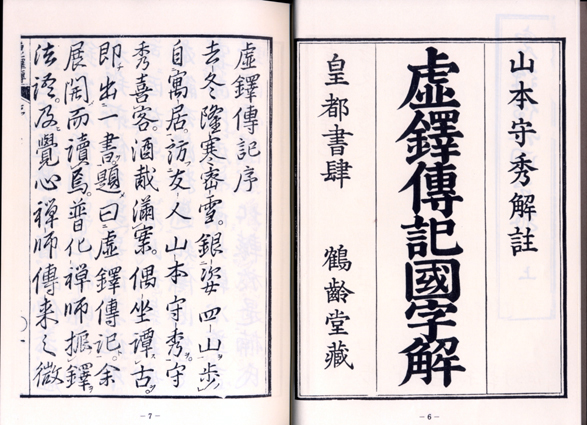 山本守秀解註
虛鐸傳記國字解
皇都書肆 鶴齡堂藏
－6－
虛鐸傳記序
去冬隆寒密雪。銀姿四山步
自寓居。訪友人山本守秀。守
秀喜客。酒滿案。偶坐譚古。
即出一書題曰虛鐸傳記。余
展開而讀焉。普化禅師振鐸
法語。及覺心禅師傳来之微
－7－